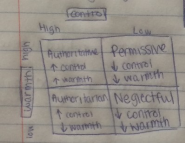 Control
High Low
high
Authoritative Permissive
↑ control ↓ control
↑ warmth ↓ warmth
warmth
Authoritarian Neglectful
↑ control ↓ control
↓ warmth ↓ warmth
low